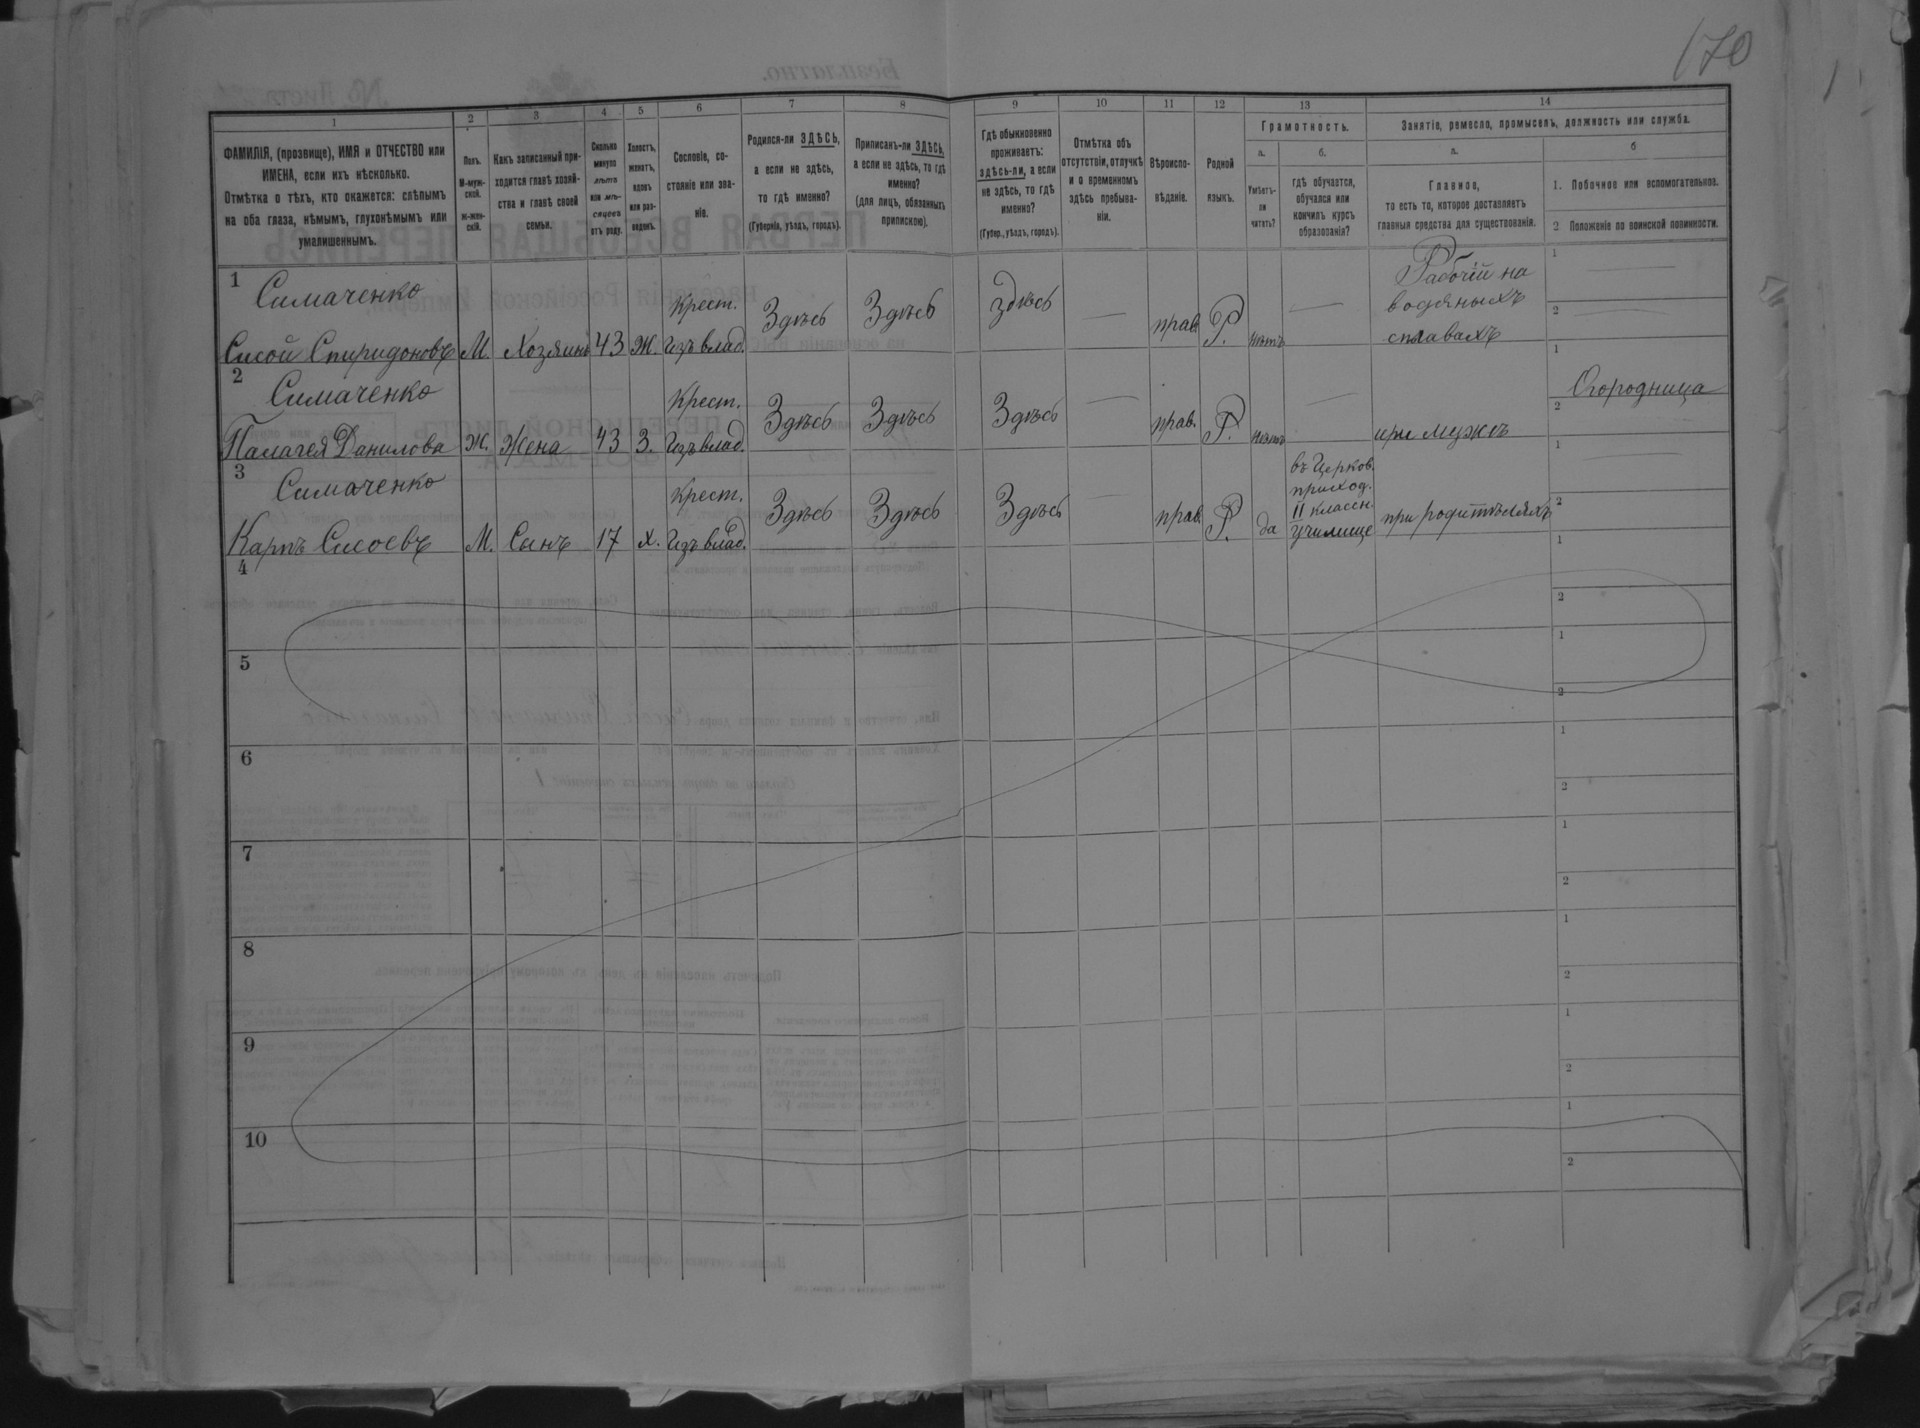 170
1 2 3 4 5 6 7 8 9 10 11 12 13 14
ФАМИЛІЯ, (прозвище), ИМЯ и ОТЧЕСТВО или
ИМЕНА, если ихъ нѣсколько.
Отмѣтка о тѣхъ, кто окажется: слѣпымъ
на оба глаза, нѣмымъ, глухонѣмымъ или
умалишеннымъ.
Полъ.
М-муж-
ской.
Ж-жен-
скій.
Какъ записанный при-
ходится главѣ хозяй-
ства и главѣ своей
семьи.
Сколько
минуло
лѣтъ
или мѣ-
сяцевъ
отъ роду.
Холостъ,
женатъ,
вдовъ
или раз-
веденъ.
Сословіе, со-
стояніе или зва-
ніе.
Родился-ли ЗДѢСЬ,
а если не здѣсь,
то гдѣ именно?
(Губернія, уѣздъ, городъ).
Приписанъ-ли ЗДѢСЬ,
а если не здѣсь, то гдѣ
именно?
(для лицъ, обязанныхъ
припиской).
Гдѣ обыкновенно
проживаетъ:
здѣсь-ли, а если
не здѣсь, то гдѣ
именно?
(Губер., уѣздъ, городъ).
Отмѣтка объ
отсутствіи, отлучкѣ
и о временномъ
здѣсь пребыва-
ніи.
Вѣроиспо-
вѣданіе.
Родной
языкъ.
Грамотность.
а.
Умѣетъ-
ли
читать?
б.
гдѣ обучается,
обучался или
кончилъ курсъ
образованія?
Занятіе, ремесло, промыселъ, должность или служба.
а.
Главное,
то есть то, которое доставляетъ
главныя средства для существованія.
б
1. Побочное или вспомогательное.
2 Положеніе по воинской повинности.
1 Симаченко
Сисой Спиридоновъ М. Хозяинъ 43 Ж. Крест.
Изъ влад. Здѣсь Здѣсь здѣсь — прав. Р. нѣтъ — Рабочій на
водяныхъ
сплавахъ
1 —
2 —
2 Симаченко
Палагея Данилова Ж. Жена 43 З. Крест.
Изъ влад. Здѣсь Здѣсь Здѣсь — прав. Р. нѣтъ — при мужѣ
1 Огородница
2
3 Симаченко
Карпъ Сисоевъ М. Сынъ 17 Х. Крест.
Изъ влад. Здѣсь Здѣсь Здѣсь — прав. Р. да въ Церков.
приход.
II классн.
училище при родителяхъ
1
2
4
1
2
5
1
2
6
1
2
7
1
2
8
1
2
9
1
2
10
1
2